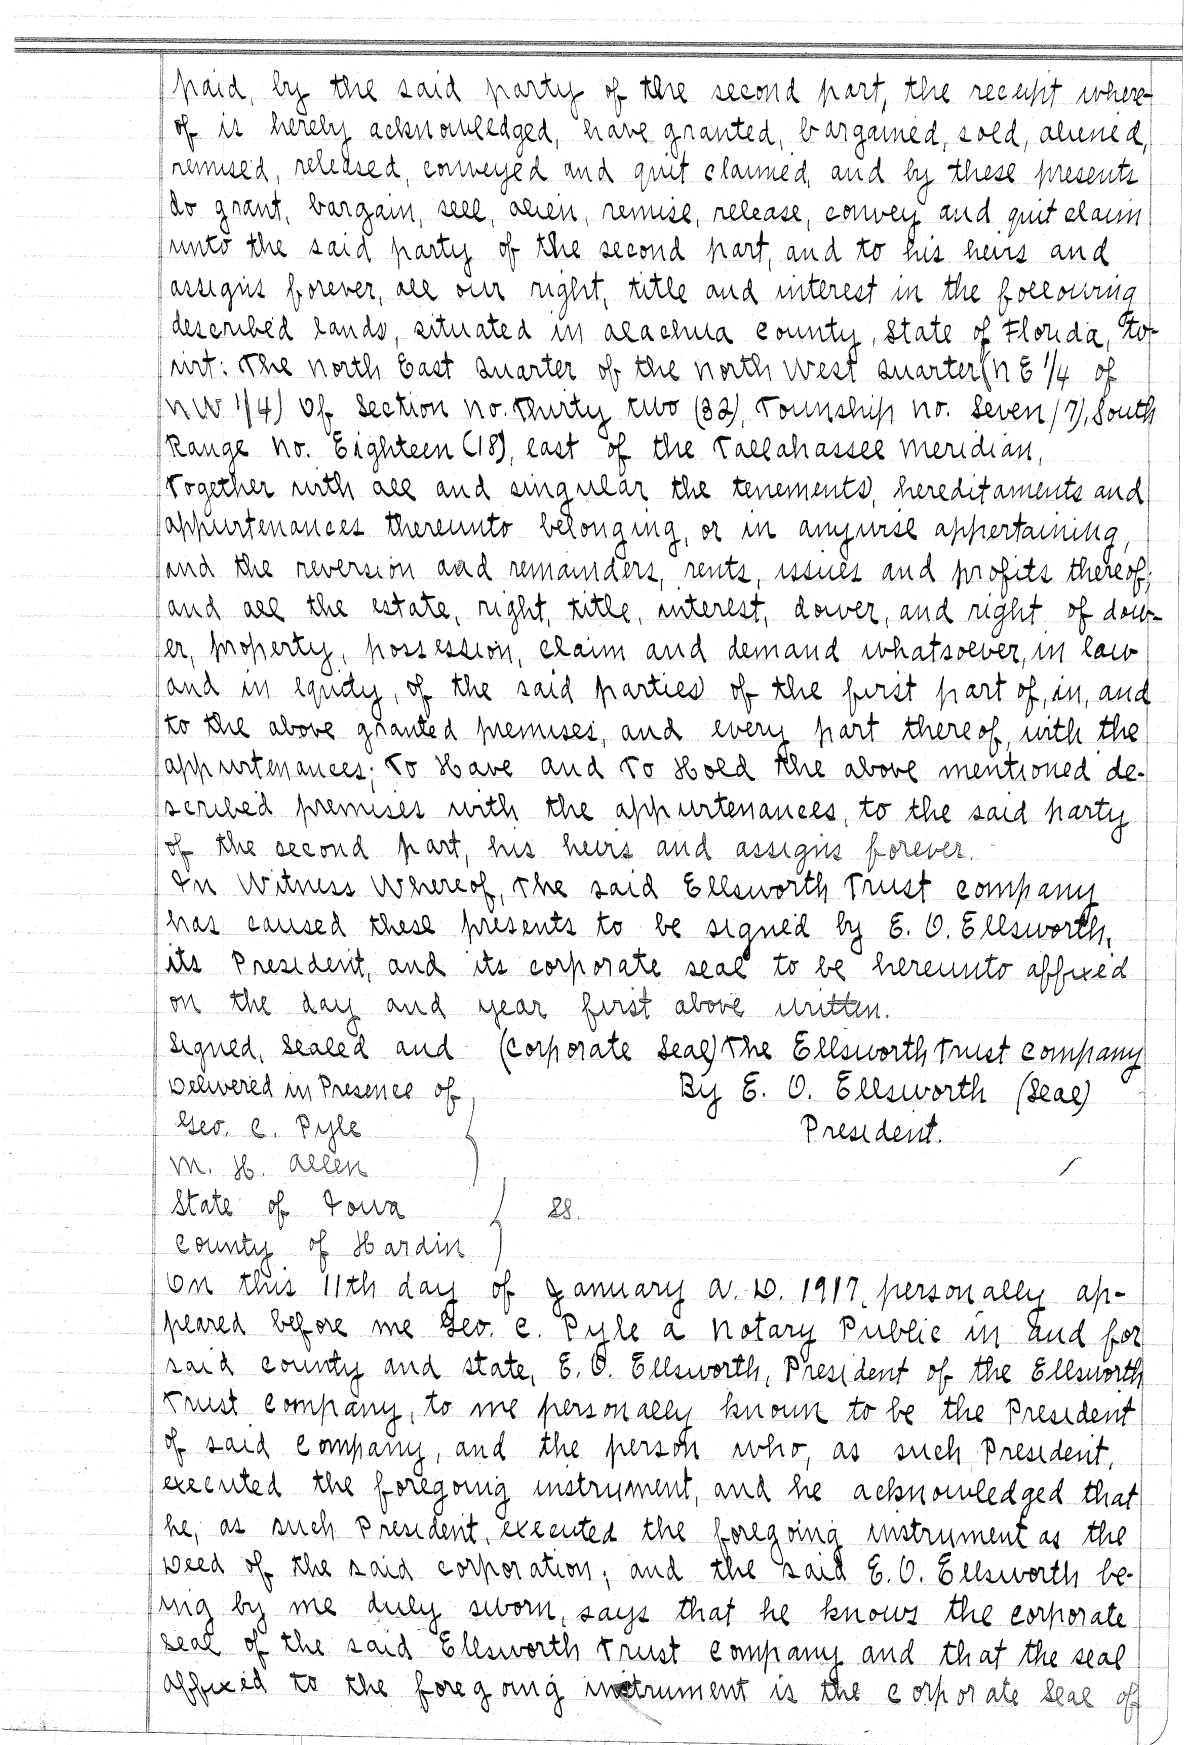 paid, by the said party of the second part, the receipt where-
of is hereby acknowledged, have granted, bargained, sold, aliened,
remised, released, conveyed and quit claimed, and by these presents
do grant, bargain, sell, alien, remise, release, convey and quit claim
unto the said party of the second part, and to his heirs and
assigns forever, all our right, title and interest in the following
described lands, situated in Alachua County, State of Florida, to-
wit: The North East Quarter of the North West Quarter (NE 1/4 of
NW 1/4) Of Section No. Thirty two (32), Township No. Seven (7), South
Range No. Eighteen (18), east of the Tallahassee Meridian,
Together with all and singular the tenements, hereditaments and
appurtenances thereunto belonging, or in anywise appertaining,
and the reversion and remainders, rents, issues and profits thereof;
and all the estate, right, title, interest, dower, and right of dow-
er, property, possession, claim and demand whatsoever, in law
and in equity, of the said parties of the first part of, in, and
to the above granted premises, and every part thereof, with the
appurtenances; To Have and To Hold the above mentioned de-
scribed premises with the appurtenances, to the said party
of the second part, his heirs and assigns forever.
In Witness Whereof, The said Ellsworth Trust Company
has caused these presents to be signed by E. O. Ellsworth,
its President, and its corporate seal to be hereunto affixed
on the day and year first above written.
Signed, Sealed and (Corporate Seal) The Ellsworth Trust Company
Delivered in Presence of By E. O. Ellsworth (Seal)
Geo. C. Pyle President.
M. H. Allen
State of Iowa SS.
County of Hardin
On this 11th day of January A. D. 1917, personally ap-
peared before me Geo. C. Pyle a Notary Public in and for
said county and state, E. O. Ellsworth, President of the Ellsworth
Trust Company, to me personally known to be the President
of said Company, and the person who, as such President,
executed the foregoing instrument, and he acknowledged that
he, as such President, executed the foregoing instrument as the
Deed of the said corporation; and the said E. O. Ellsworth be-
ing by me duly sworn, says that he knows the corporate
seal of the said Ellsworth Trust Company and that the seal
affixed to the foregoing instrument is the corporate Seal of